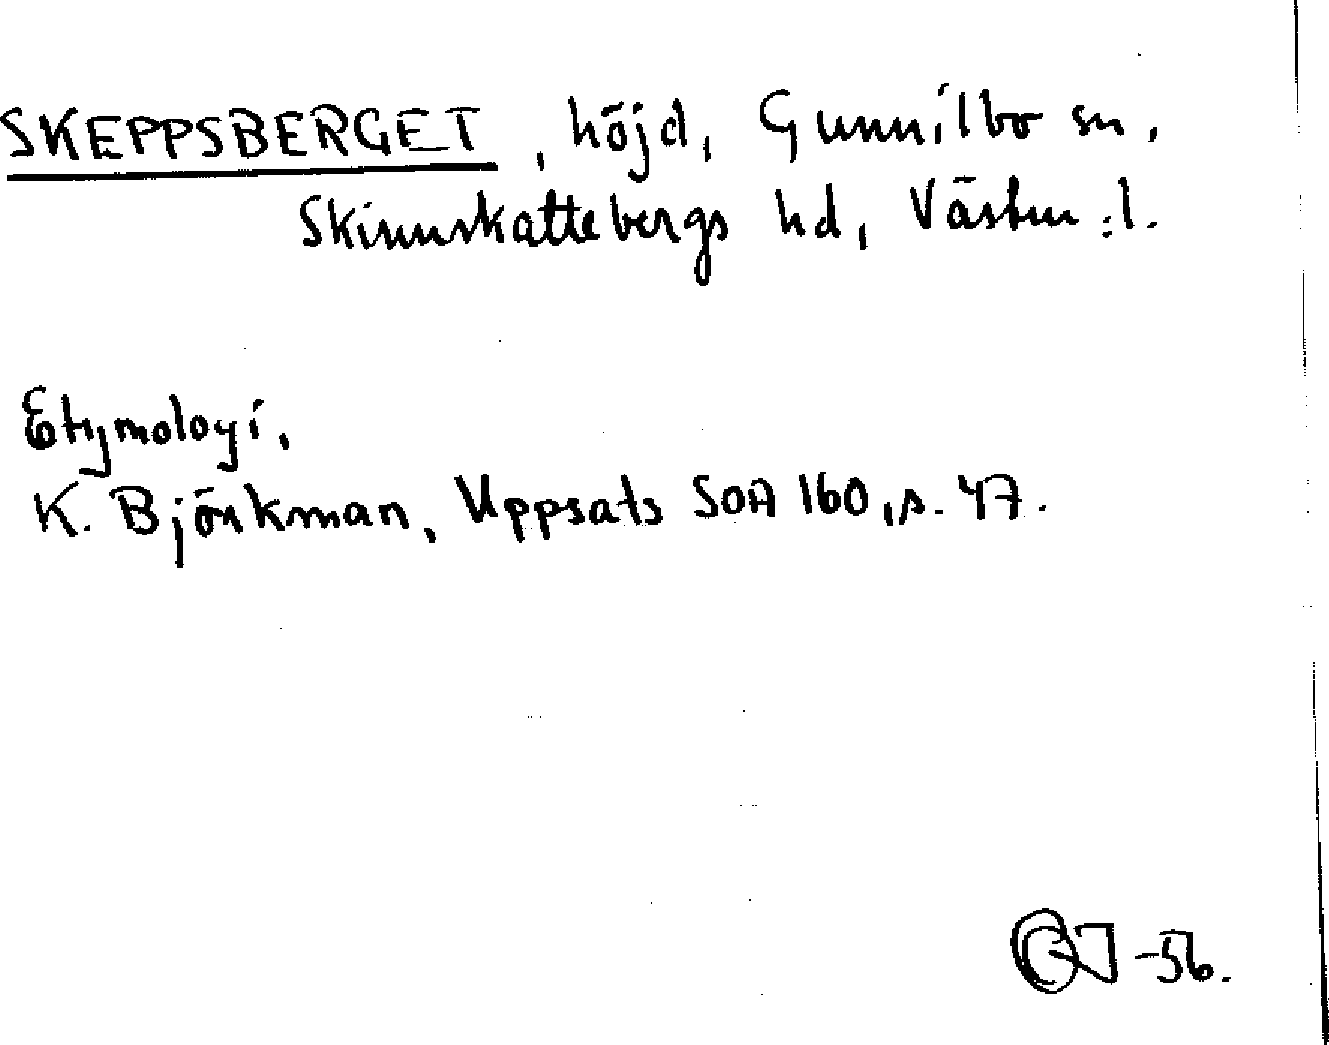 SKEPPSBERGET, höjd, Gunnilbo sn.
Skinnskattebergs hd, Västm:l.
Etymologi.
K. Björkman, Uppsats SOA 160, s. 47.
-56.